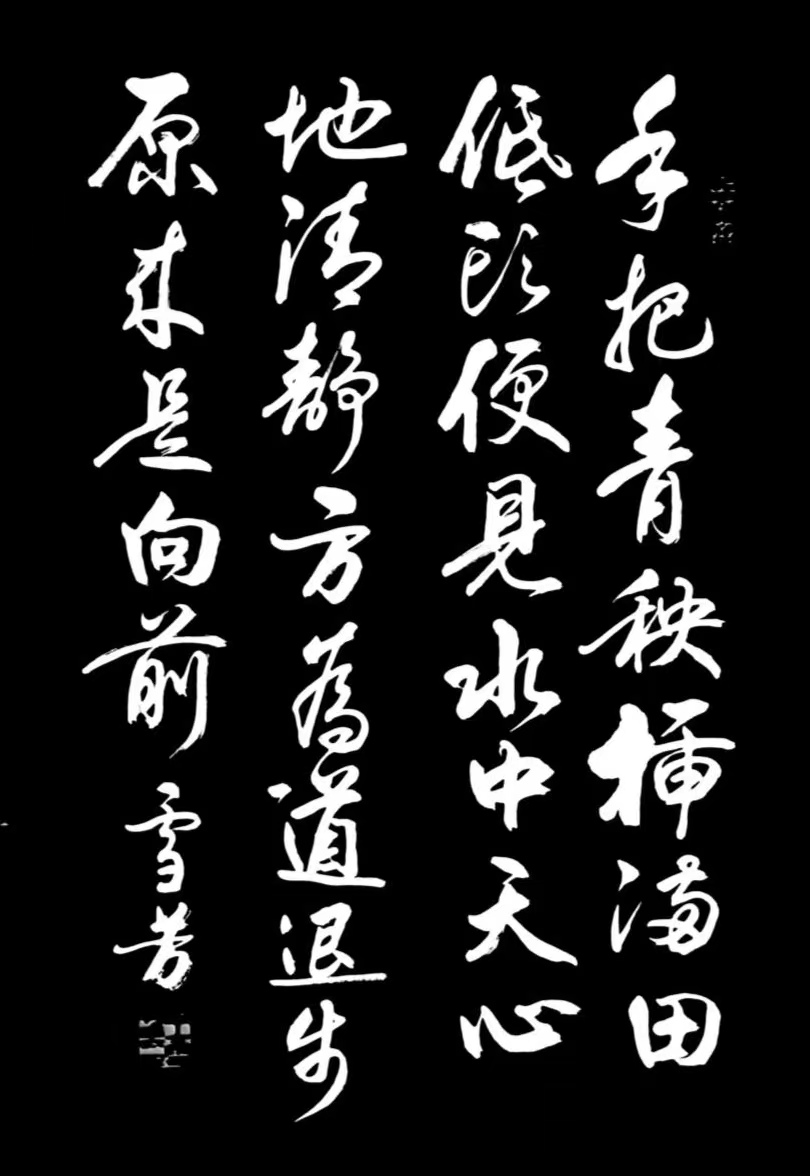 手把青秧插满田
低头便見水中天心
地清静方為道退步
原来是向前
雪芳